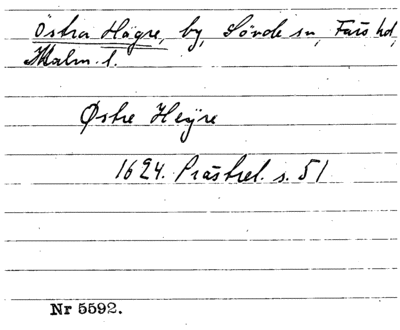 Östra Högre, by, Sövde sn, Färs hd,
Malm. l.
Østre Heyre
1624. Prästrel. s. 51
Nr 5592.